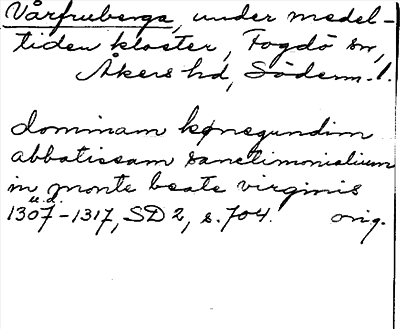 Vårfruberga, under medel-
tiden kloster, Fogdö sn,
Åkers hd, Söderm. l.
dominam konegundim
abbatissam sanctimonialium
in monte beate virginis
u.d.
1307-1317, SD 2, s. 704. orig.